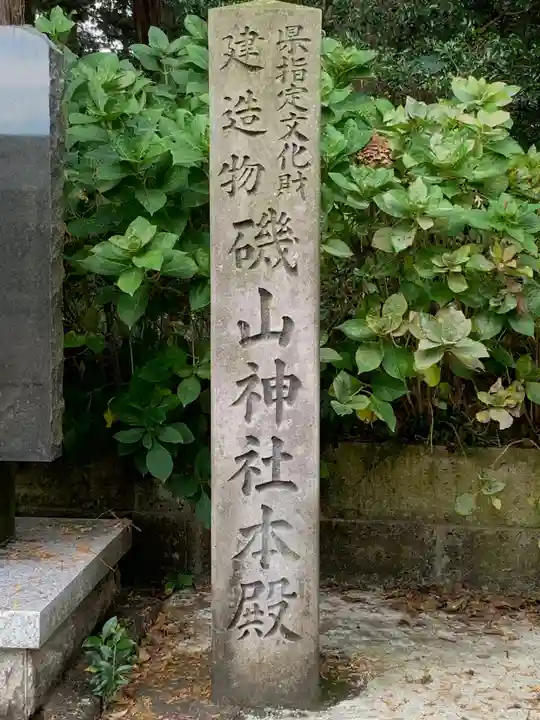 県指定文化財
建造物
磯山神社本殿